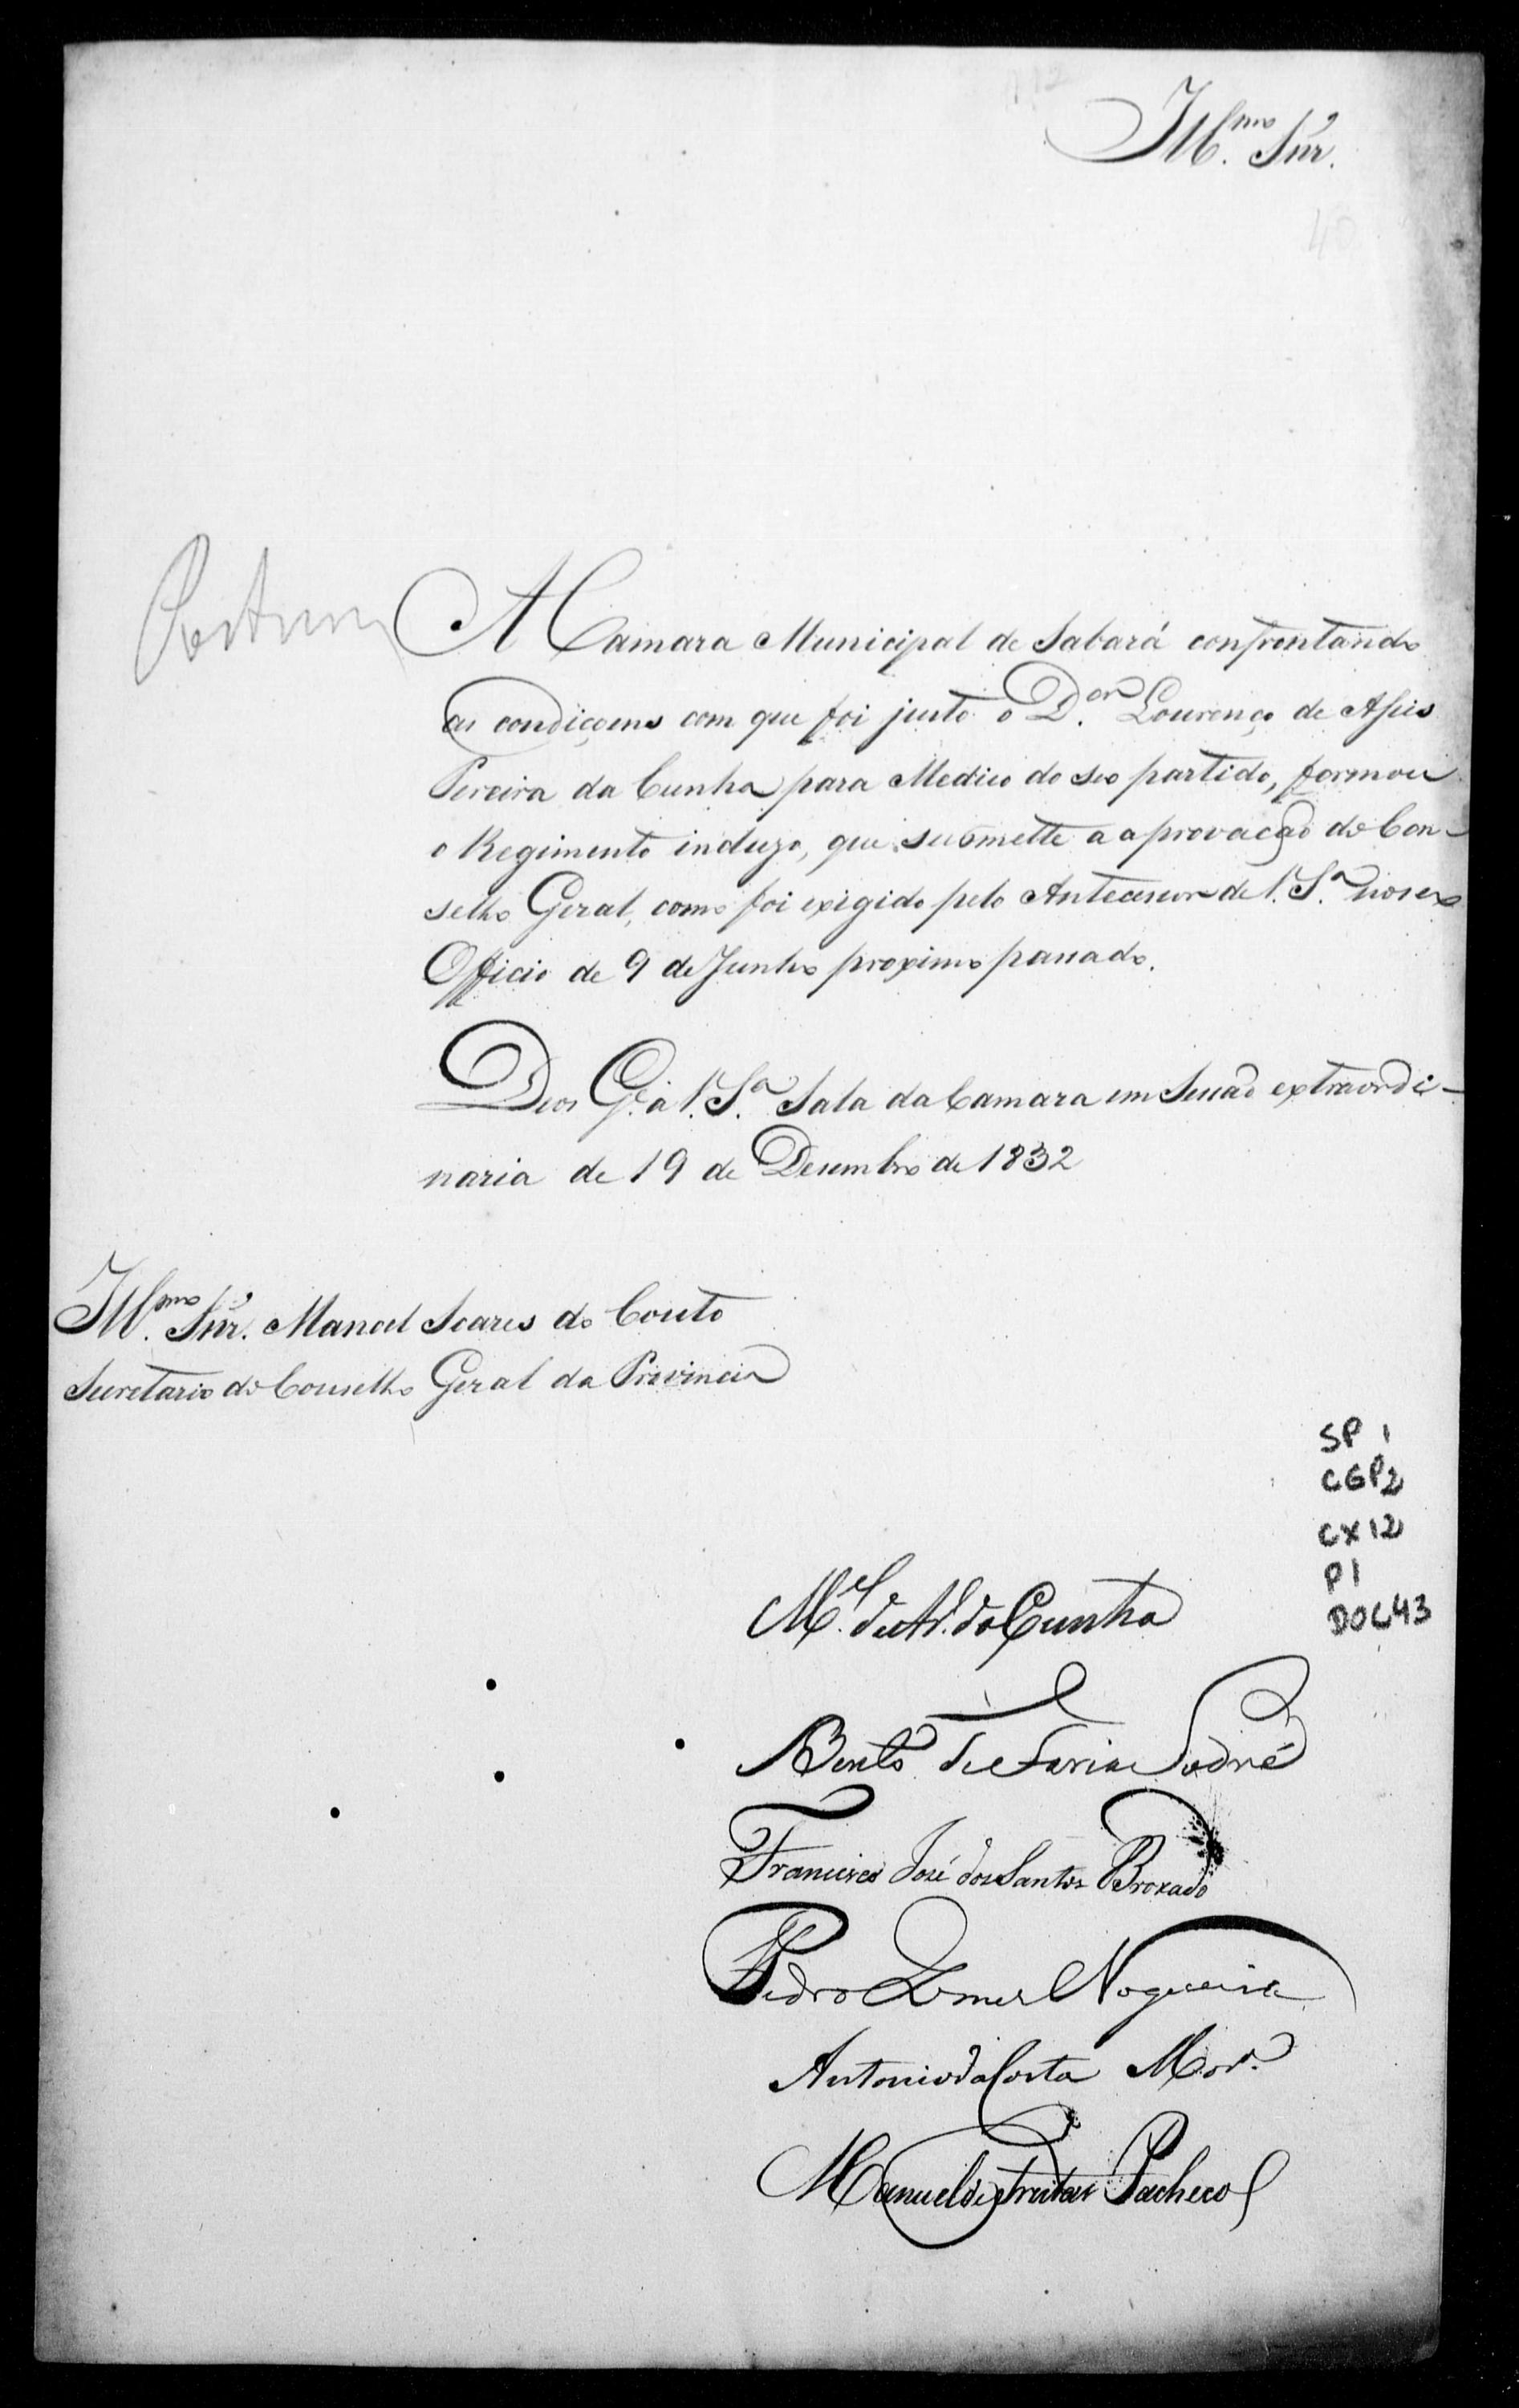 Ill.mo Snr.
A Camara Municipal de Sabará confrontando
as condiçoens com que foi justo o D.or Lourenço de Assis
Pereira da Cunha para Medico do seo partido, formou
o Regimento incluzo, que submette a aprovação do Con-
selho Geral, como foi exigido pelo Antecessor de V. S.a no seo
Officio de 9 de Junho proximo passado.
Deos G.e a V. S.a Sala da Camara em Sessão extraordi-
naria de 19 de Desembro de 1832
Ill.mo Snr. Manoel Soares do Couto
Secretario do Conselho Geral da Provincia
SP 1
CGP2
CX 12
P1
DOC43
M.el de Ar. da Cunha
Bento de Faria Sodré
Francisco José dos Santos Broxado
Pedro Gomes Nogueira
Antonio da Costa Mor.a
Manuel de Freitas Pacheco